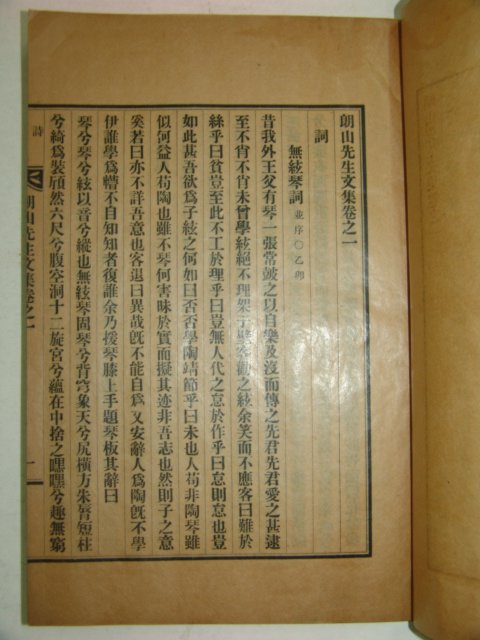 朗山先生文集卷之一
詞
無絃琴詞 並序○乙卯
昔我外王父有琴一張常皷之以自樂及沒而傳之先君先君愛之甚逮
至不肖不肖未曾學絃絕不理架于壁客勸之絃余笑而不應客曰難於
絲乎曰貧豈至此不工於理乎曰豈無人代之怠於作乎曰怠則怠也豈
如此甚吾欲爲子絃之何如曰否否學陶靖節乎曰未也人苟非陶琴雖
似何益人苟陶也雖不琴何害昧於實而擬其迹非吾志也然則子之意
奚若曰亦不詳吾意也客退曰異哉旣不能自爲又安辭人爲陶旣不學
伊誰學爲響不自知知者復誰余乃援琴膝上手題琴板其辭曰
琴兮琴兮絃以音兮縱也無絃琴固琴兮背穹象天兮尻橫方朱唇短柱
兮綺爲裝頎然六尺兮腹空洞十二旋宮兮蘊在中捨之嘿嘿兮趣無窮
詩
朗山先生文集卷之一
一